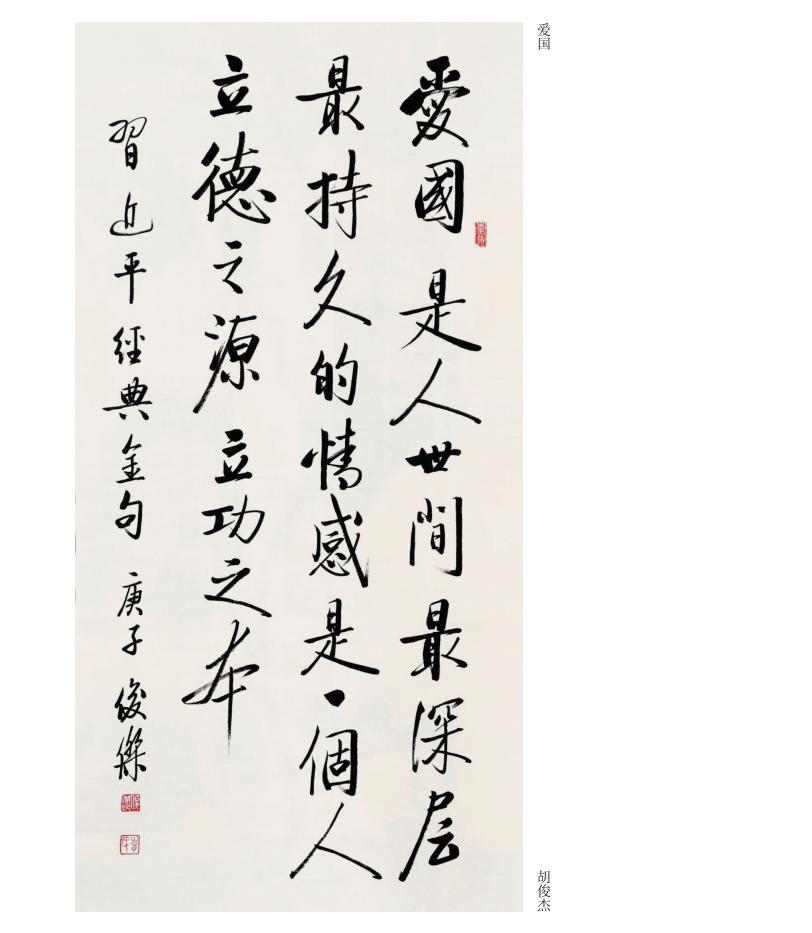 爱国
愛國是人世間最深层
最持久的情感是一個人
立德之源立功之本
習近平經典金句 庚子 俊傑
胡俊杰